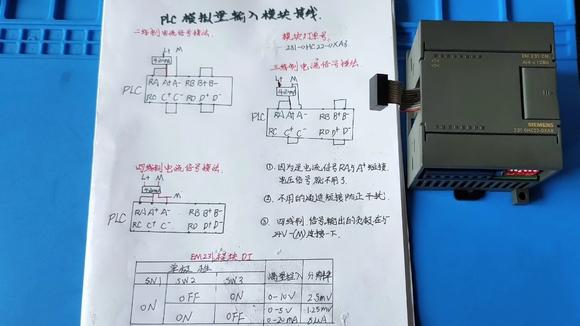 PLC 模拟量输入模块接线.
二线制电流信号接法
L+ M
4-20mA
RA A+ A- RB B+ B-
PLC
RC C+ C- RD D+ D-
模块订单号:
231-0HC22-0XA8
三线制电流信号接法
L+ M
4-20mA
RA A+ A- RB B+ B-
PLC
RC C+ C- RD D+ D-
四线制电流信号接法
L+ M
RA A+ A- RB B+ B-
PLC
RC C+ C- RD D+ D-
① 因为是电流信号RA与A+短接,
电压信号就不用了
② 不用的通道短接防止干扰)
③ 四线制,信号输出的负极在与
24V-(M)连接一下.
EM231模块DI
单极性 满量程输入 分辨率
SW1 SW2 SW3
ON OFF ON 0-10V 2.5mV
ON OFF 0-5V 1.25mV
0-20mA 5uA
EM 231 CN
AI4 x 12Bit
SIEMENS
231-0HC22-0XA8